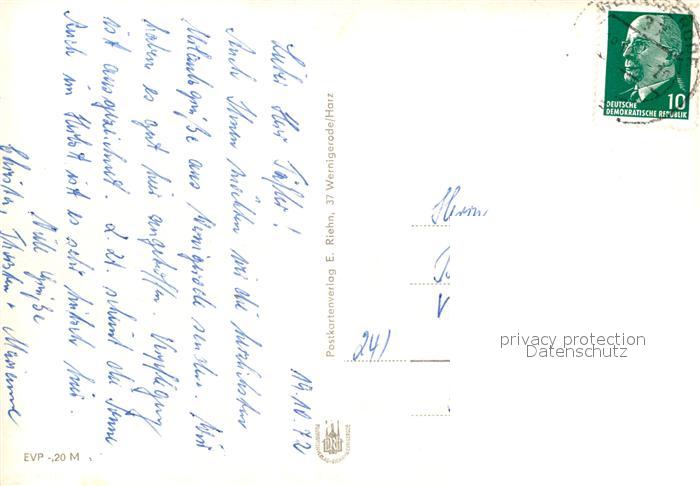 19.10.72
Lieber Herr
Auch Ihnen möchten wir die herzlichsten
Urlaubsgrüße aus Wernigerode senden. Wir
haben es gut hier angetroffen. Verpflegung
ist ausgezeichnet. Z. Zt. scheint die Sonne
Auch im Herbst ist es sehr hübsch hier.
Viele Grüße
Christa, Thorsten + Marianne
EVP -,20 M
Postkartenverlag E. Riehn, 37 Wernigerode/Harz
10
DEUTSCHE
DEMOKRATISCHE REPUBLIK
Herrn
241
privacy protection
Datenschutz